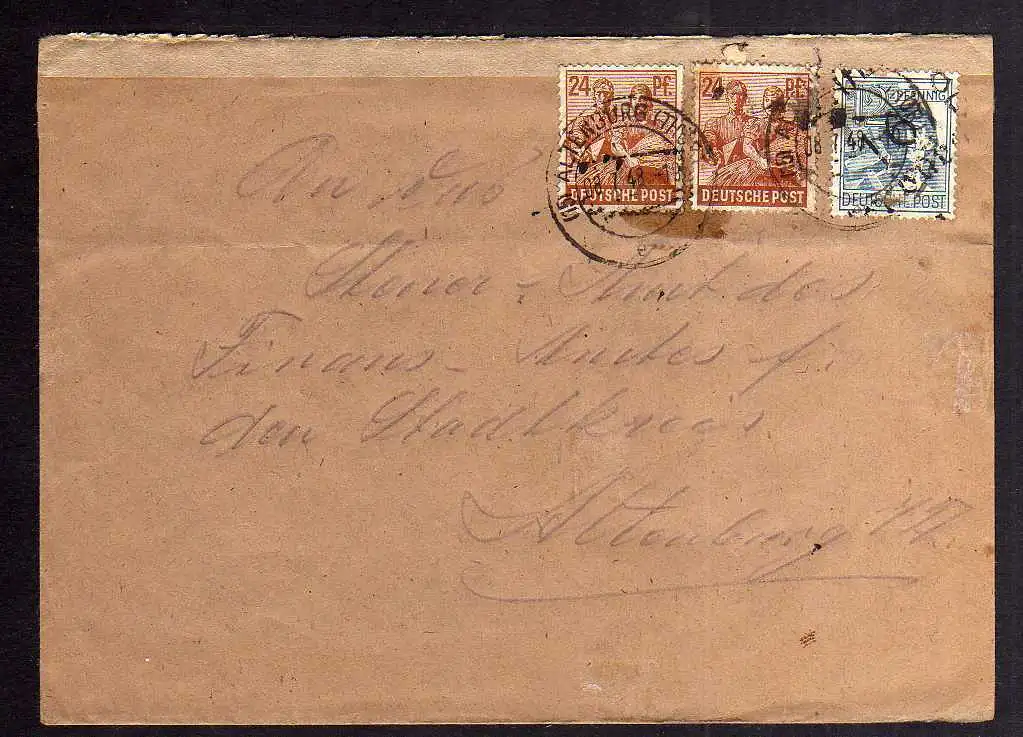 24 Pf 24 Pf PFENNIG
DEUTSCHE POST DEUTSCHE POST DEUTSCHE POST
ALTENBURG (THÜR
An das
Steuer-Amt des
Finanz-Amtes f.
den Stadtkreis
Altenburg